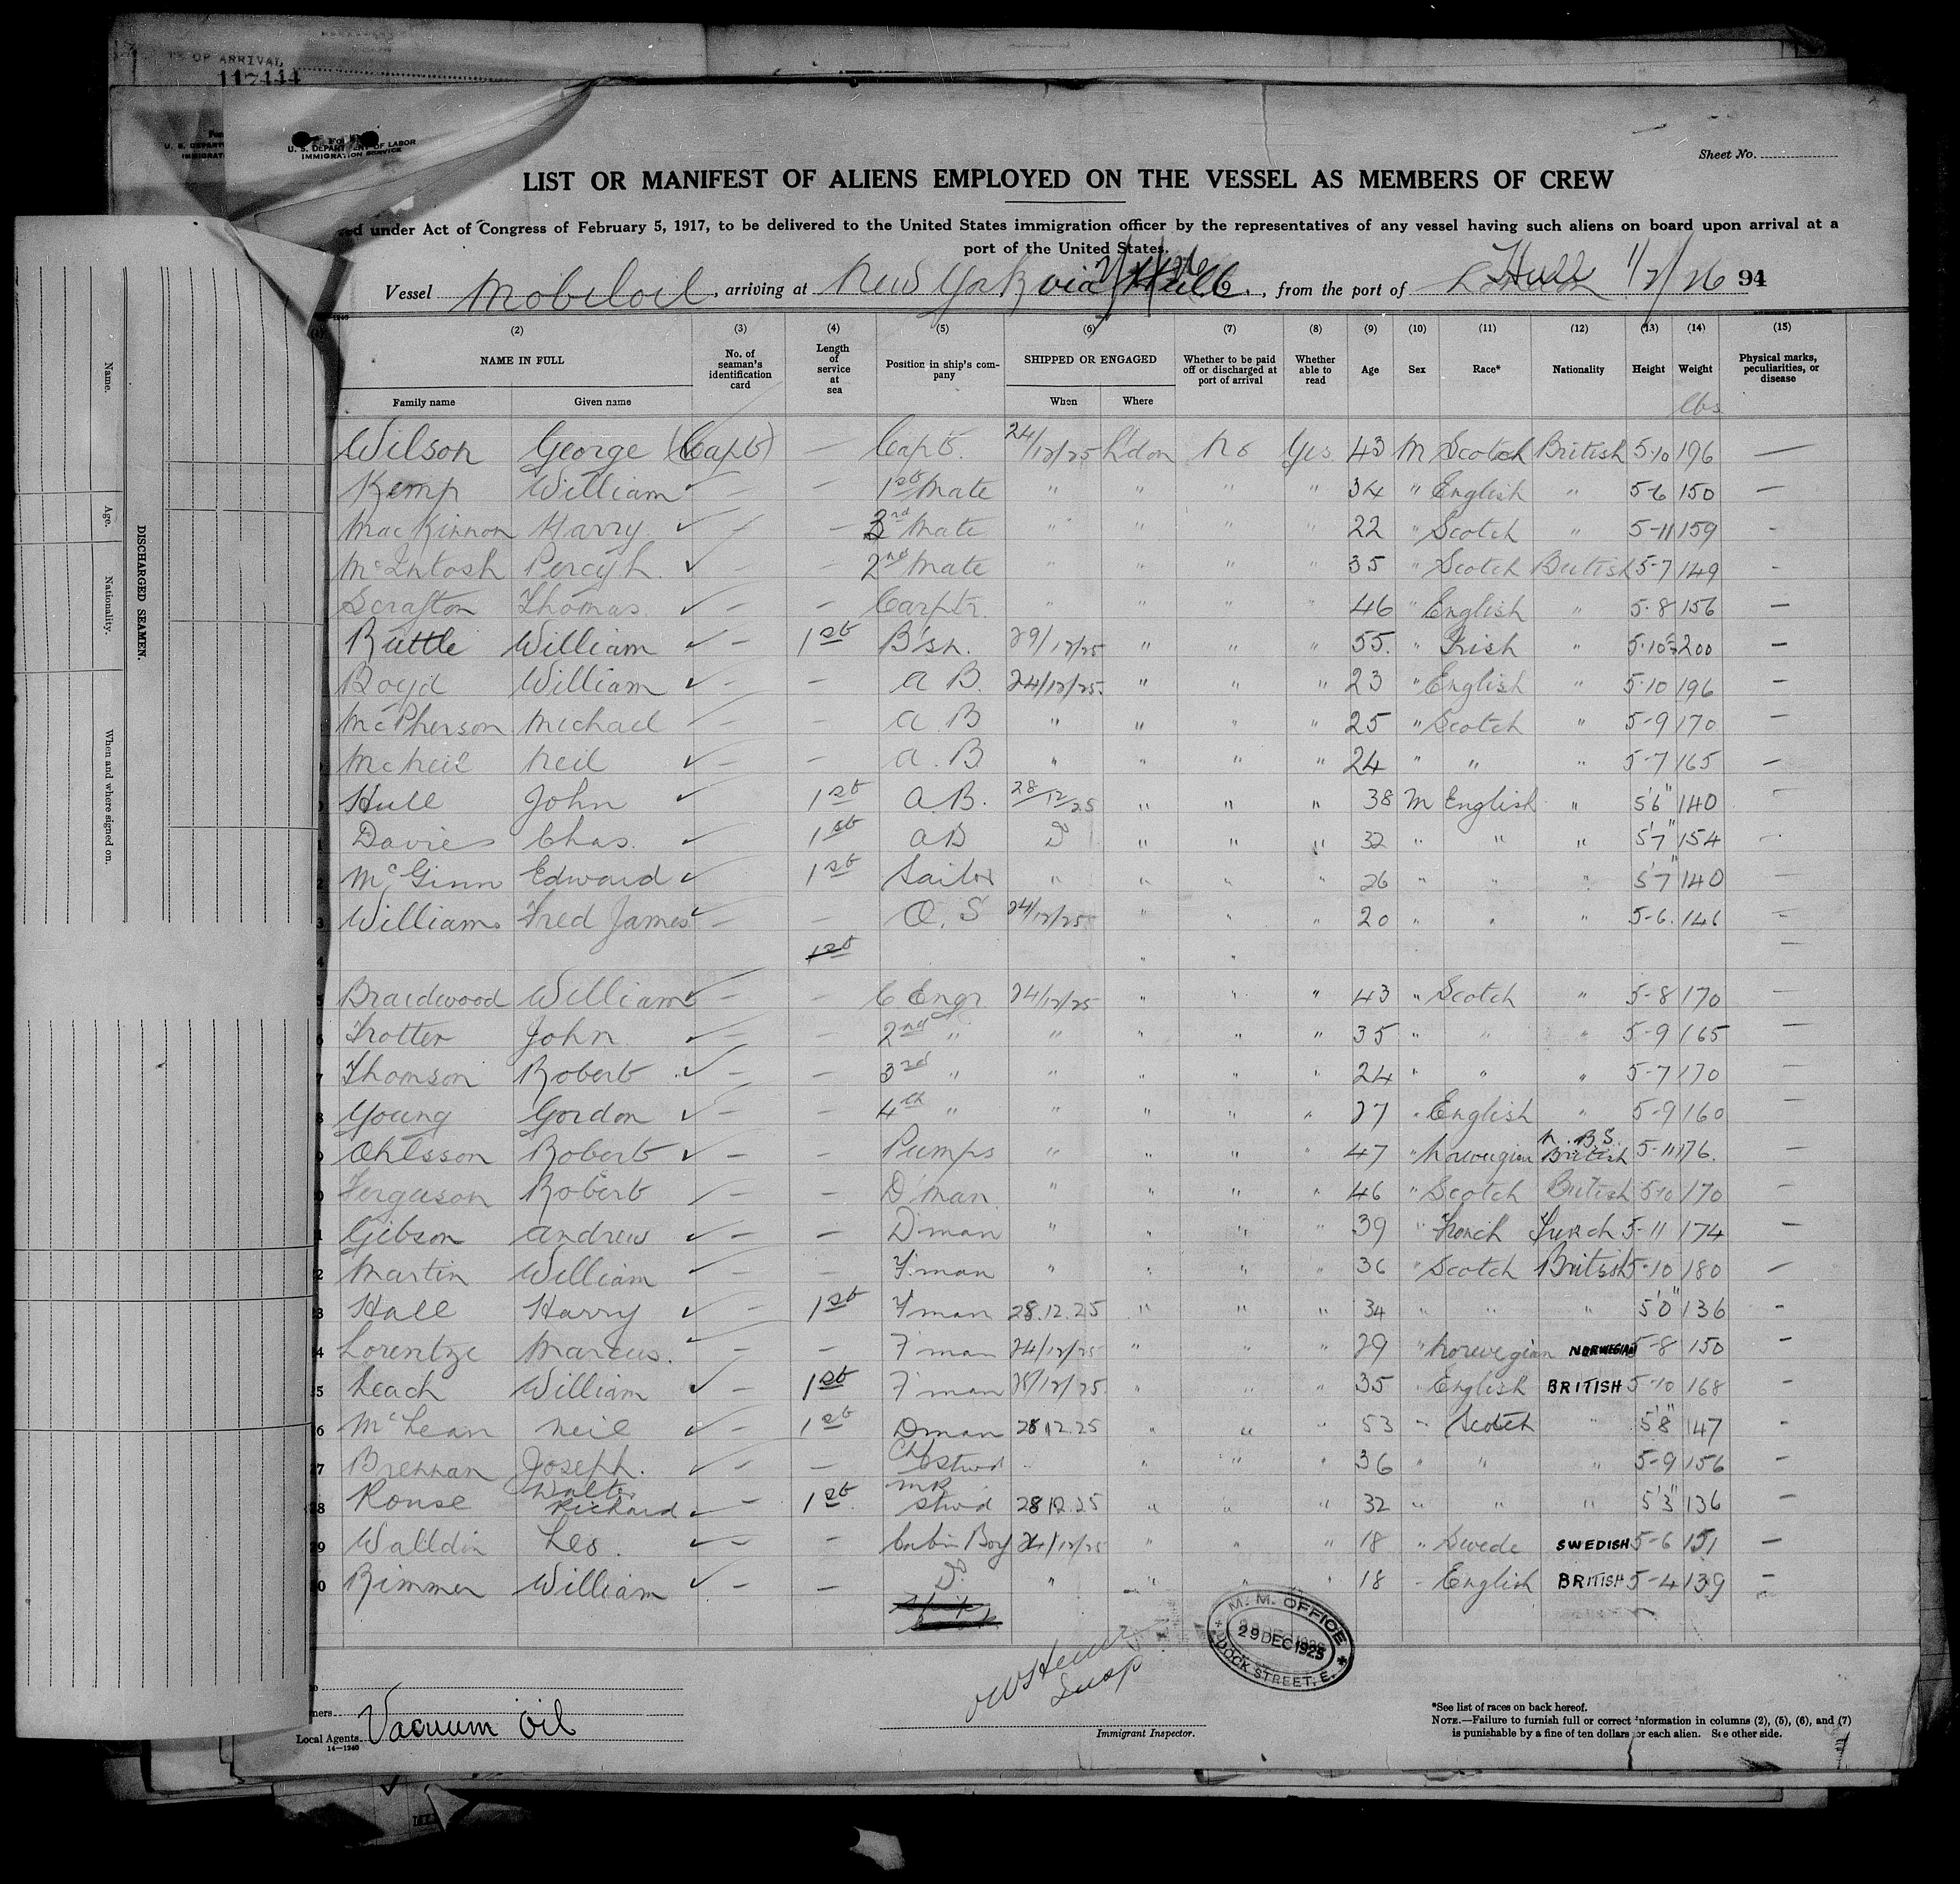 OF ARRIVAL
117444
U. S. DEPARTMENT OF LABOR
IMMIGRATION SERVICE
Sheet No.
LIST OR MANIFEST OF ALIENS EMPLOYED ON THE VESSEL AS MEMBERS OF CREW
ed under Act of Congress of February 5, 1917, to be delivered to the United States immigration officer by the representatives of any vessel having such aliens on board upon arrival at a
port of the United States.
Vessel Mobiloil, arriving at New York via Hull, from the port of Hull 1/2/26 94
(2) (3) (4) (5) (6) (7) (8) (9) (10) (11) (12) (13) (14) (15)
NAME IN FULL
Family name Given name
No. of seaman's identification card
Length of service at sea
Position in ship's company
SHIPPED OR ENGAGED
When Where
Whether to be paid off or discharged at port of arrival
Whether able to read
Age Sex Race* Nationality Height Weight
Physical marks, peculiarities, or disease
lbs
Wilson George (Capt) — Capt. 24/12/25 L'don No Yes 43 M Scotch British 5.10 196 —
Kemp William — — 1st Mate " " " " 34 " English " 5-6 150 —
MacKinnon Harry — — 3rd Mate " " " " 22 " Scotch " 5-11 159 -
McIntosh Percy H. — — 2nd Mate " " " " 35 " Scotch British 5-7 149 -
Scrafton Thomas — — Carptr. " " " " 46 " English " 5.8 156 —
Ruttle William — 1st B'sn. 29/12/25 " " " 55. " Irish " 5.10½ 200 —
Boyd William — — A B. 24/12/25. " " " 23 " English " 5.10 196 —
McPherson Michael — — A. B " " " " 25 " Scotch " 5-9 170 —
McNeil Neil — — A. B " " " " 24 " " " 5-7 165 —
Hull John 1st A.B. 28/12/25 " " " 38 M English " 5'6" 140 —
Davies Chas. 1st AB D " " " 32 " " " 5'7" 154 -
McGinn Edward 1st Sailor " " " " 26 " " " 5'7" 140 —
Williams Fred James — — O. S 24/12/25 " " " 20 " " " 5-6. 146 -
1st " " —
Braidwood William — — C Engr 24/12/25 " " " 43 " Scotch " 5-8 170 —
Trotter John — — 2nd " " " " " 35 " " " 5-9 165 —
Thomson Robert — — 3rd " " " " " 24 " " " 5-7 170 —
Young Gordon — — 4th " " " " " 27 " English " 5-9 160 —
Ohlsson Robert — — Pumps " " " " 47 " Norwegian British 5-11 176. —
Ferguson Robert — — D'man " " " " 46 " Scotch British 5.10 170 —
Gibson Andrew — — D'man " " " " 39 " French 5-11 174 —
Martin William — — F.man " " " " 36 " Scotch British 5-10 180 —
Hall Harry — 1st F'man 28.12.25 " " " 34 " " " 5'0" 136 -
Lorentze Marcus. — — F'man 24/12/25 " " " 29 " Norwegian NORWEGIAN 5-8 150 —
Leach William — 1st F'man /12/25. " " " 35 " English BRITISH 5-10 168 -
McLean Neil — 1st Dman 28.12.25 " " " 53 " Scotch " 5'8" 147 —
Brennan Joseph. — — Ch Stwd " " " " 36 " " " 5-9 156 -
Rouse Walter Richard — 1st MR Stwd 28.12.25 " " " 32 " " " 5'3" 136 —
Walldin Leo. — — Cabin Boy 24/12/25 " " " 18 " Swede SWEDISH 5-6 151 —
Rimmer William — — D. " " " " 18 - English BRITISH 5-4 139 —
M. M. OFFICE
29 DEC 1925
DOCK STREET, E.
Insp
Immigrant Inspector.
Local Agents Vacuum Oil
14—1240
*See list of races on back hereof.
NOTE.—Failure to furnish full or correct information in columns (2), (5), (6), and (7)
is punishable by a fine of ten dollars for each alien. See other side.
DISCHARGED SEAMEN.
Name.
Age.
Nationality.
When and where signed on.